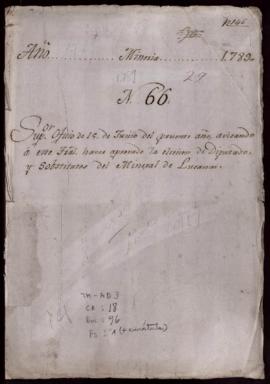 Año Mineria 1789
29
N. 66.
Sup.or Oficio de 15 de Junio del presente año, avisando
á este Tral. haver aprovado la eleccion de Diputados
y Sobstitutos del Mineral de Lucanas
TM-AD3
CA: 18
96